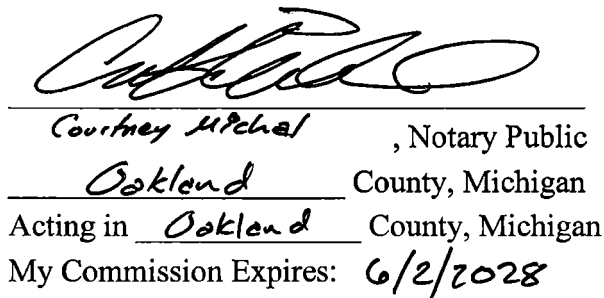 Courtney Michal, Notary Public
Oakland County, Michigan
Acting in Oakland County, Michigan
My Commission Expires: 6/2/2028